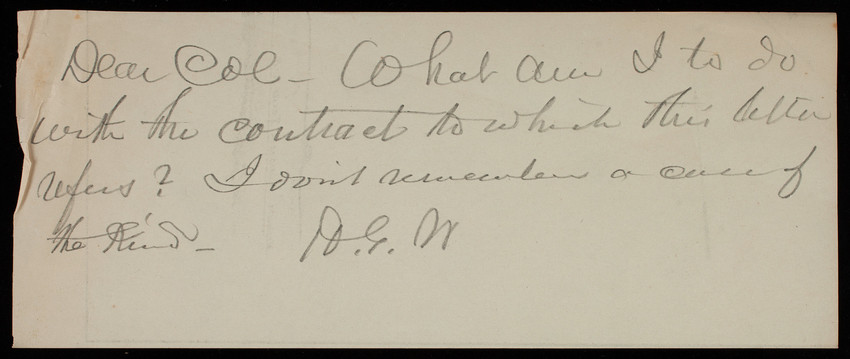 Dear Col - What am I to do
with the contract to which this letter
refers? I don't remember a case of
the kind - H.G.W